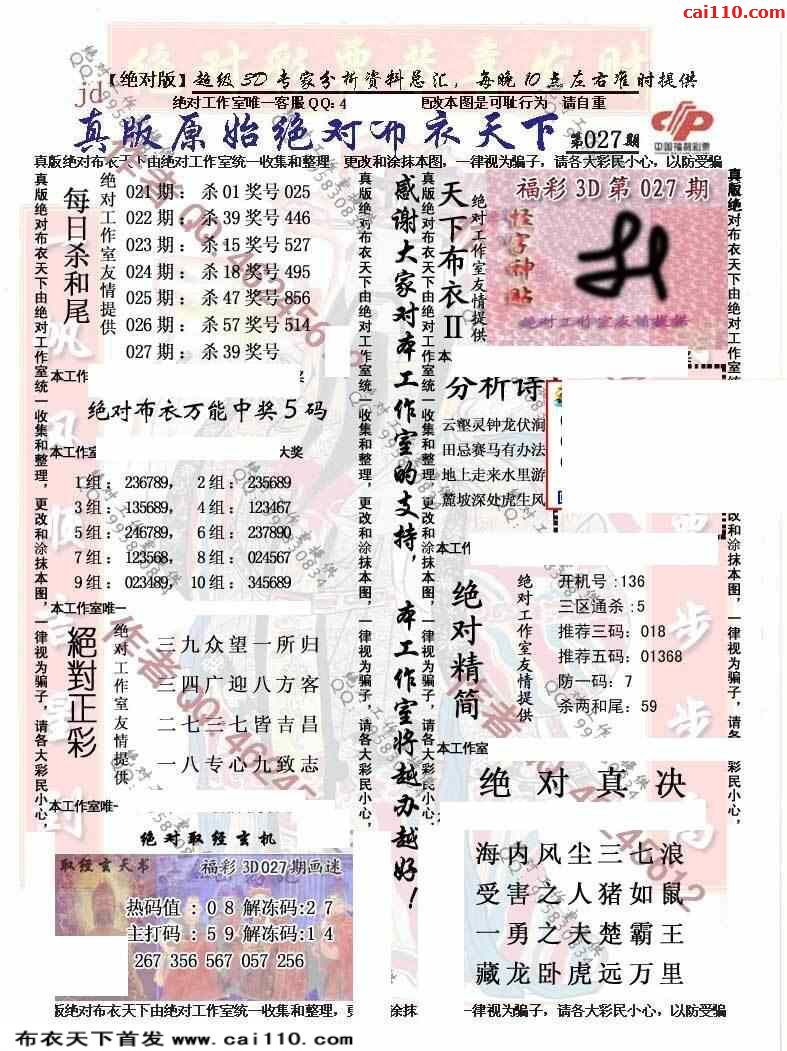 cai110.com
【绝对版】超级3D专家分析资料总汇，每晚10点左右准时提供
jd
绝对工作室唯一客服QQ：4 更改本图是可耻行为 请自重
真版原始绝对布衣天下 第027期
中国福利彩票
真版绝对布衣天下由绝对工作室统一收集和整理，更改和涂抹本图，一律视为骗子，请各大彩民小心，以防受骗
真版绝对布衣天下由绝对工作室统一收集和整理，更改和涂抹本图，一律视为骗子，请各大彩民小心，
每日杀和尾
绝对工作室友情提供
021期：杀01奖号025
022期：杀39奖号446
023期：杀15奖号527
024期：杀18奖号495
025期：杀47奖号856
026期：杀57奖号514
027期：杀39奖号
本工作
绝对布衣万能中奖5码
本工作室 大奖
1组：236789， 2组：235689
3组：135689， 4组：123467
5组：246789， 6组：237890
7组：123568， 8组：024567
9组：023489， 10组：345689
本工作室唯一
絕對正彩
绝对工作室友情提供
三九众望一所归
三四广迎八方客
二七三七皆吉昌
一八专心九致志
本工作室唯一
绝对取经玄机
取经玄天书 福彩3D027期画谜
热码值：08解冻码:27
主打码：59解冻码:14
267 356 567 057 256
真版绝对布衣天下由绝对工作室统一收集和整理，更改和涂抹本图，一律视为骗子，请各大彩民小心，
感谢大家对本工作室的支持，本工作室将越办越好！
真版绝对布衣天下由绝对工作室统一收集和整理，更改和涂抹本图，一律视为骗子，请各大彩民小心，
天下布衣II
绝对工作室友情提供
福彩3D第027期
怪字神贴
绝对工作室友情提供
分析诗
云壑灵钟龙伏涧
田忌赛马有办法
地上走来水里游
麓坡深处虎生风
本工作
绝对精简
绝对工作室友情提供
开机号:136
三区通杀:5
推荐三码：018
推荐五码：01368
防一码：7
杀两和尾：59
本工作室
绝对真决
海内风尘三七浪
受害之人猪如鼠
一勇之夫楚霸王
藏龙卧虎远万里
真版绝对布衣天下由绝对工作室统
改和涂抹本图，一律视为骗子，请各大
彩民小心，
版绝对布衣天下由绝对工作室统一收集和整理，更
涂抹 一律视为骗子，请各大彩民小心，以防受骗
布衣天下首发 www.cai110.com